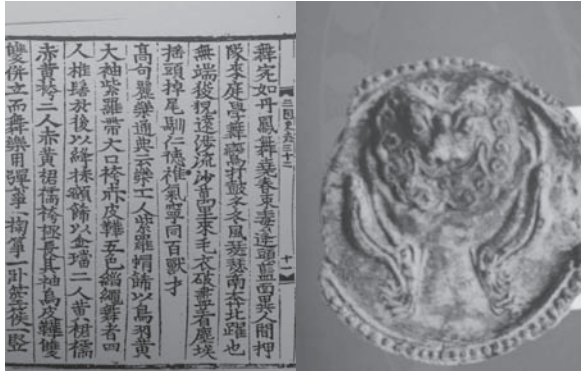 舞宛如丹鳳舞堯春束毒蓬頭藍面異人間押
隊來庭學舞鸞打鼓冬冬風瑟瑟南奔北躍也
無端狻猊遠涉流沙萬里來毛衣破盡着塵埃
搖頭掉尾馴仁德雄氣寧同百獸才
高句麗樂通典云樂工人紫羅帽飾以鳥羽黃
大袖紫羅帶大口袴赤皮鞾五色緇繩舞者四
人椎髻於後以絳抹額飾以金璫二人黃裙襦
赤黃袴二人赤黃裙襦袴極長其袖烏皮鞾雙
雙併立而舞樂用彈箏一掬箏一臥箜篌一竪